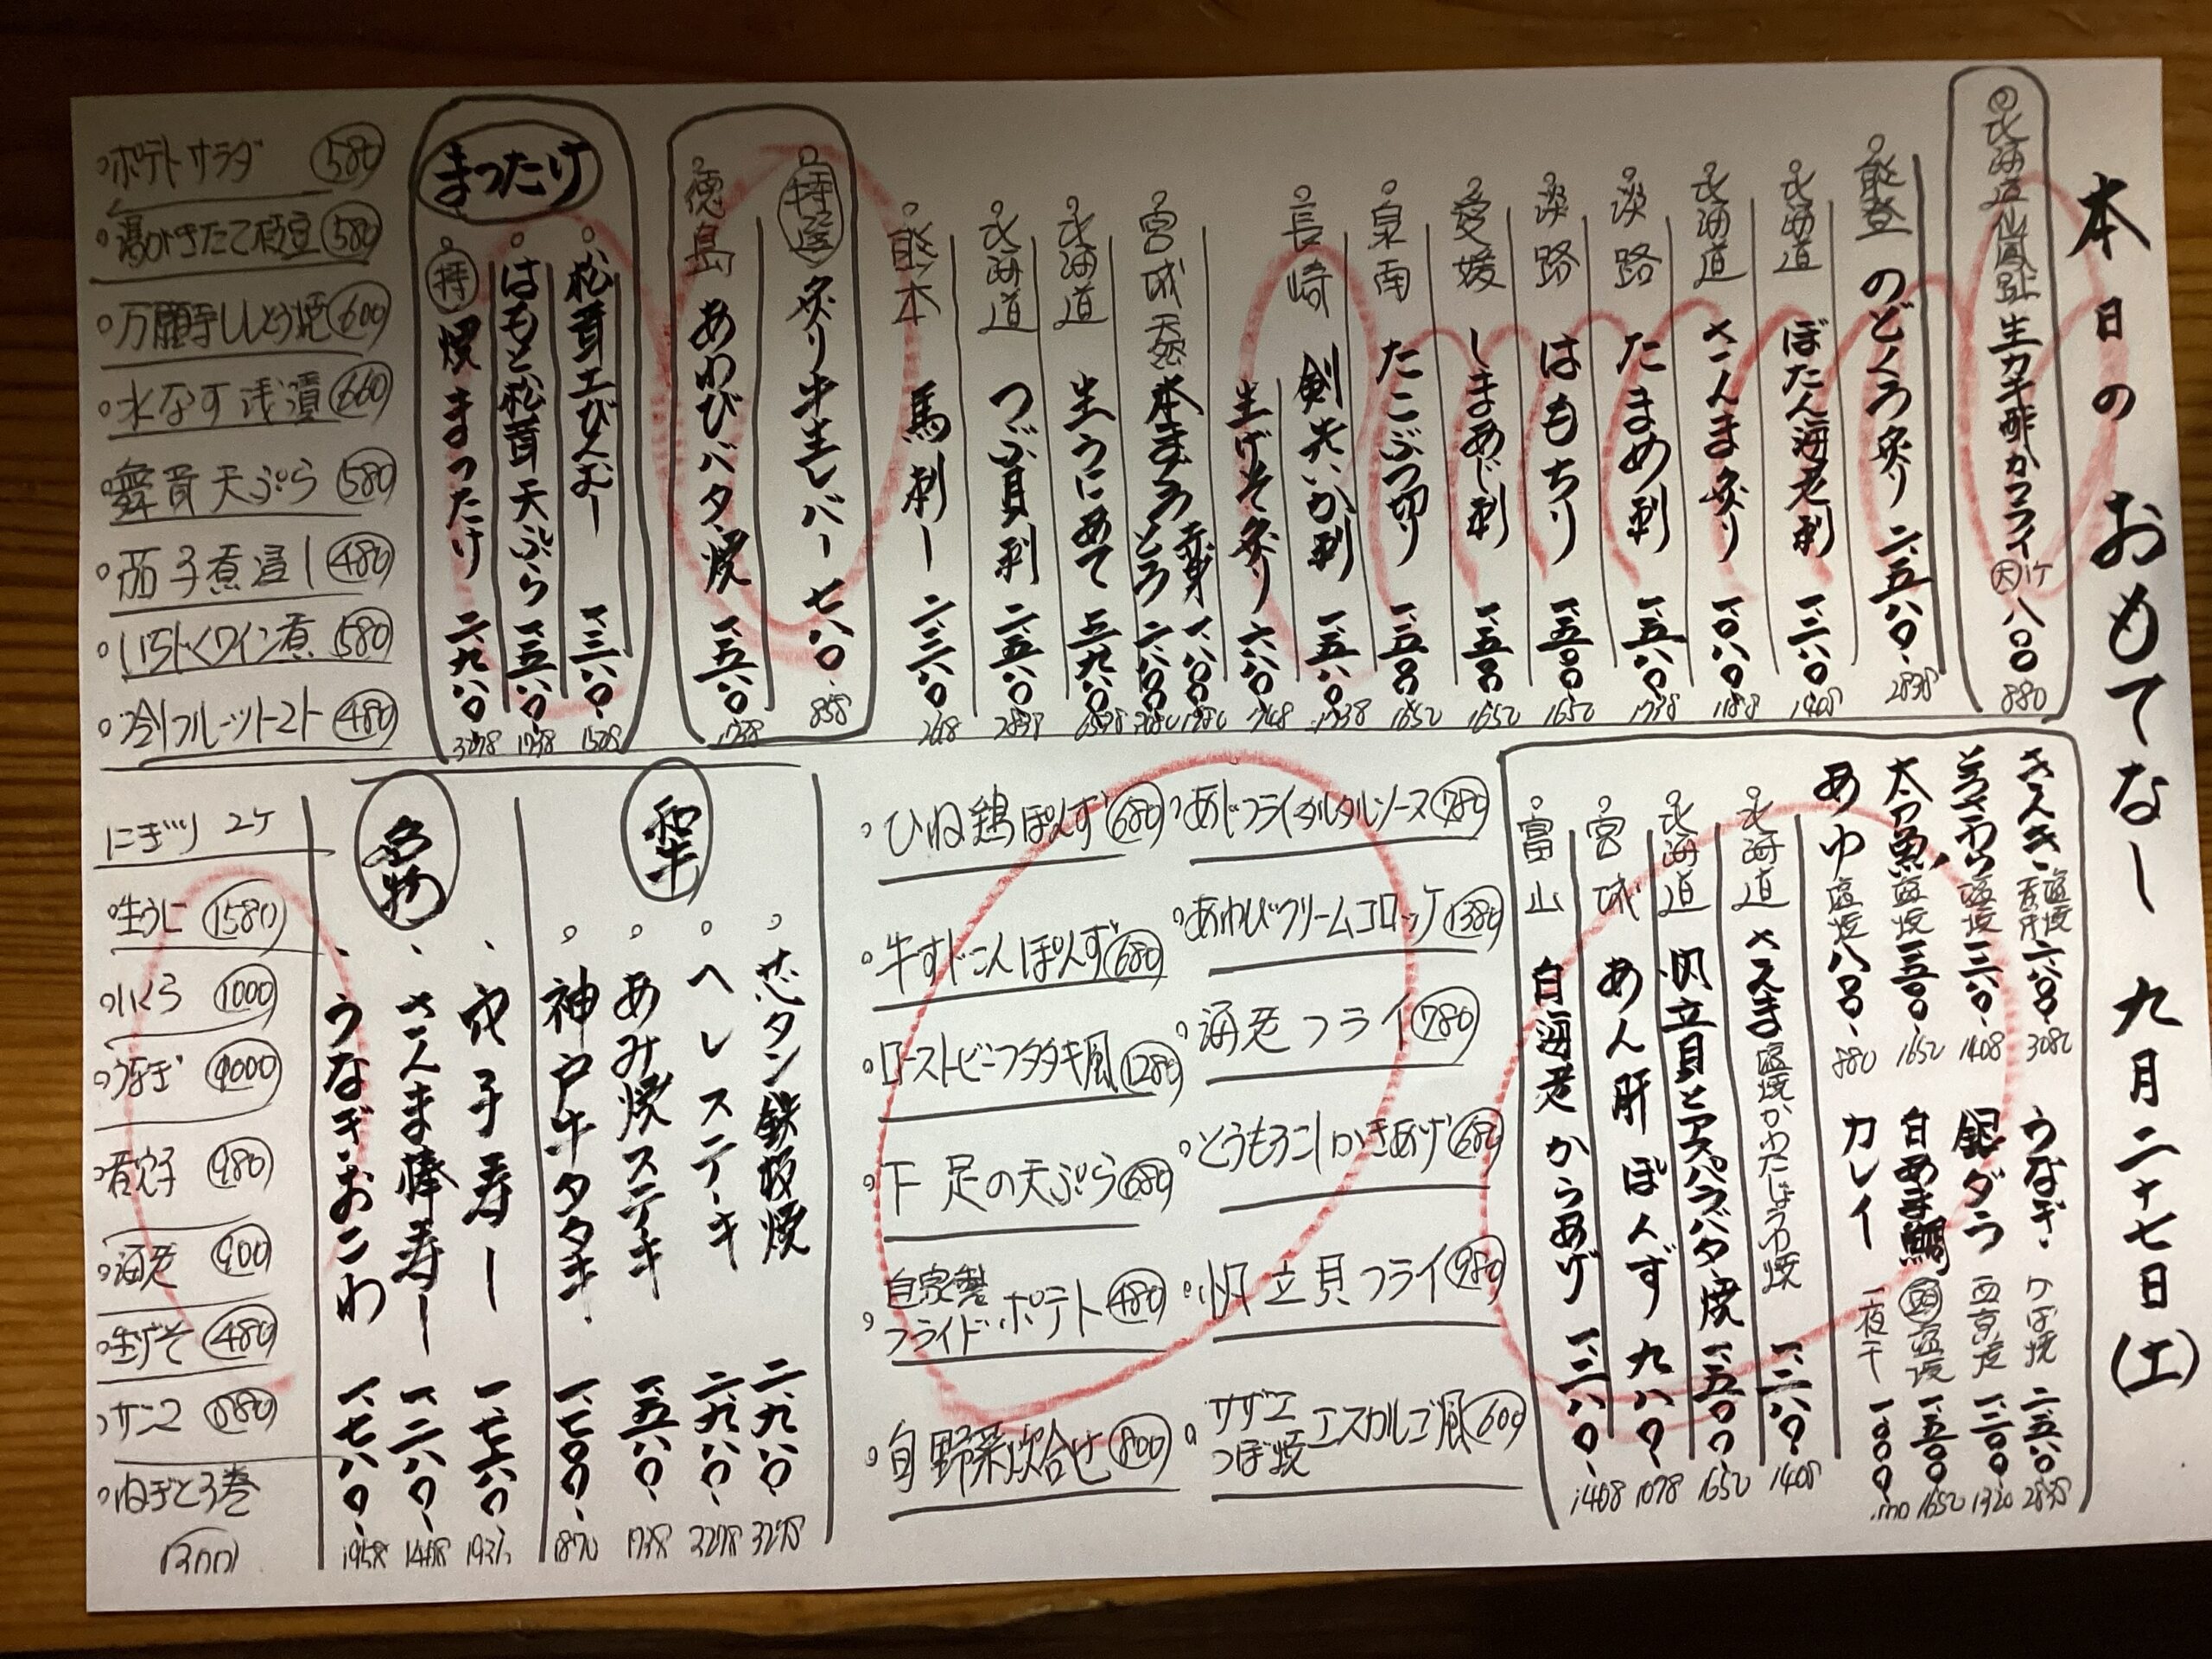 本日のおもてなし 九月二十七日(土)
北海道仙鳳趾 生カキ酢かフライ 大 1ケ 八〇〇 880
能登 のどくろ炙り 二、五八〇 2838
北海道 ぼたん海老刺 一、二八〇 1408
北海道 さんま炙り 一、〇八〇 1188
淡路 たまめ刺 一、五八〇 1738
淡路 はもちり 一、五〇〇 1650
愛媛 しまあじ刺 一、五〇〇 1650
泉南 たこぶつ切り 一、五〇〇 1650
長崎 剣先いか刺 一、五八〇 1738
生げそ炙り 六八〇 748
宮城 天然 本まぐろ 赤身 一、八〇〇 1980
とろ 二、八〇〇 3080
北海道 生うにあて 五、九八〇 6578
北海道 つぶ貝刺 二、五八〇 2838
熊本 馬刺し 二、三八〇 2618
特選 炙り牛生レバー 七八〇 858
徳島 あわびバタ焼 一、五八〇 1738
まったけ
松茸土びんむし 一、三八〇 1518
はもと松茸天ぷら 一、五八〇 1738
特 焼まったけ 二、九八〇 3278
ポテトサラダ 580
湯がきたて枝豆 580
万願寺ししとう焼 600
水なす浅漬 660
舞茸天ぷら 580
茄子煮浸し 480
いちじくワイン煮 580
冷しフルーツトマト 480
きんき 塩焼 煮付 二、八〇〇 3080
とろさわら 塩焼 一、二八〇 1408
太刀魚 塩焼 一、五〇〇 1650
あゆ 塩焼 八〇〇 880
うなぎ かば焼 二、五八〇 2838
銀ダラ 西京焼 一、二〇〇 1320
白あま鯛 塩焼 一、五〇〇 1650
カレイ 一夜干 一、〇〇〇
北海道 さんま 塩焼かわたじょうゆ焼 一、二八〇 1408
北海道 帆立貝とアスパラバタ焼 一、五〇〇 1650
宮城 あん肝ぽんず 九八〇 1078
富山 白海老からあげ 一、二八〇 1408
あじフライタルタルソース 780
あわびクリームコロッケ 1380
海老フライ 780
とうもろこしかきあげ 680
帆立貝フライ 980
サザエつぼ焼 エスカルゴ風 600
ひね鶏ぽんず 680
牛すじこんぽんず 680
ローストビーフタタキ風 1280
下足の天ぷら 680
自家製フライドポテト 480
旬野菜炊合せ 800
和牛
芯タン鉄板焼 二、九八〇 3278
ヘレステーキ 二、九八〇 3278
あみ焼ステーキ 一、五八〇 1738
神戸牛タタキ 一、七〇〇 1870
名物
穴子寿し 一、七六〇 1936
さんま棒寿し 一、二八〇 1408
うなぎおこわ 一、七八〇 1958
にぎり 2ケ
生うに 1580
いくら 1000
うなぎ 1000
煮穴子 980
海老 900
生げそ 480
サーモン
ねぎとろ巻